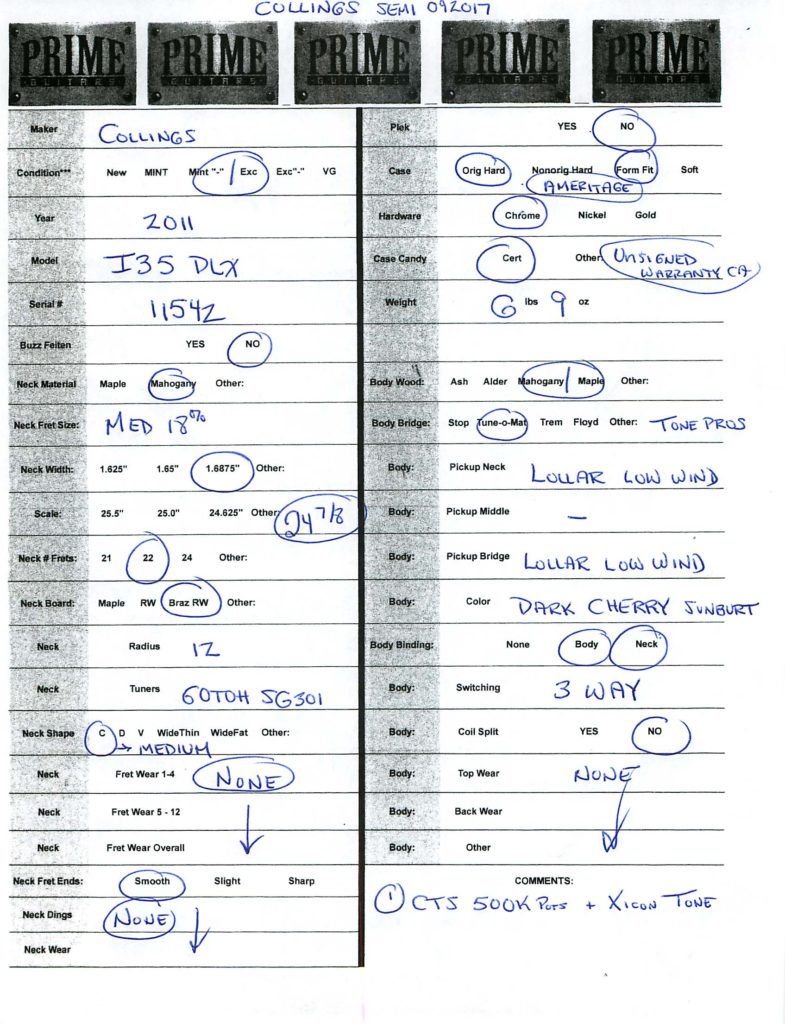 COLLINGS SEMI 092017
PRIME GUITARS PRIME GUITARS PRIME GUITARS PRIME GUITARS PRIME GUITARS
Maker COLLINGS
Condition*** New MINT Mint "-" / Exc Exc"-" VG
Year 2011
Model I35 DLX
Serial # 11542
Buzz Feiten YES NO
Neck Material Maple Mahogany Other:
Neck Fret Size: MED 18%
Neck Width: 1.625" 1.65" 1.6875" Other:
Scale: 25.5" 25.0" 24.625" Other 24 7/8
Neck # Frets: 21 22 24 Other:
Neck Board: Maple RW Braz RW Other:
Neck Radius 12
Neck Tuners GOTOH SG301
Neck Shape C D V WideThin WideFat Other:
→ MEDIUM
Neck Fret Wear 1-4 NONE
Neck Fret Wear 5 - 12
Neck Fret Wear Overall
Neck Fret Ends: Smooth Slight Sharp
Neck Dings NONE
Neck Wear
Plek YES NO
Case Orig Hard Nonorig Hard Form Fit Soft
AMERITAGE
Hardware Chrome Nickel Gold
Case Candy Cert Other: UNSIGNED
WARRANTY CA
Weight 6 lbs 9 oz
Body Wood: Ash Alder Mahogany / Maple Other:
Body Bridge: Stop Tune-o-Mat Trem Floyd Other: TONE PROS
Body: Pickup Neck LOLLAR LOW WIND
Body: Pickup Middle —
Body: Pickup Bridge LOLLAR LOW WIND
Body: Color DARK CHERRY SUNBURT
Body Binding: None Body Neck
Body: Switching 3 WAY
Body: Coil Split YES NO
Body: Top Wear NONE
Body: Back Wear
Body: Other
COMMENTS:
① CTS 500K POTS + XICON TONE